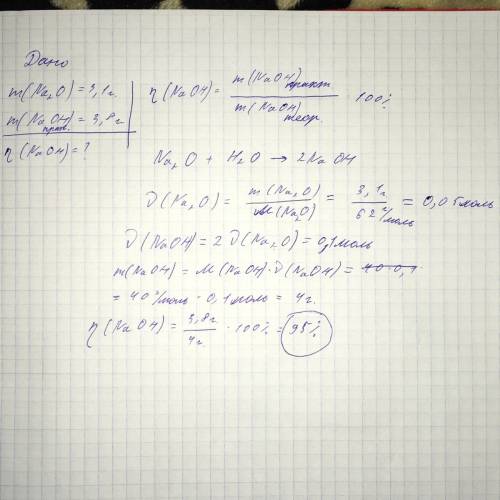 Дано
m(Na₂O) = 3,1г.
m(NaOH)практ. = 3,8г.
η(NaOH) = ?
η(NaOH) = m(NaOH)практ / m(NaOH)теор. · 100%
Na₂O + H₂O → 2NaOH
ν(Na₂O) = m(Na₂O) / M(Na₂O) = 3,1г / 62 г/моль = 0,05моль
ν(NaOH) = 2ν(Na₂O) = 0,1моль
m(NaOH) = M(NaOH)·ν(NaOH) =
= 40 г/моль · 0,1моль = 4г.
η(NaOH) = 3,8г. / 4г. · 100% = 95%